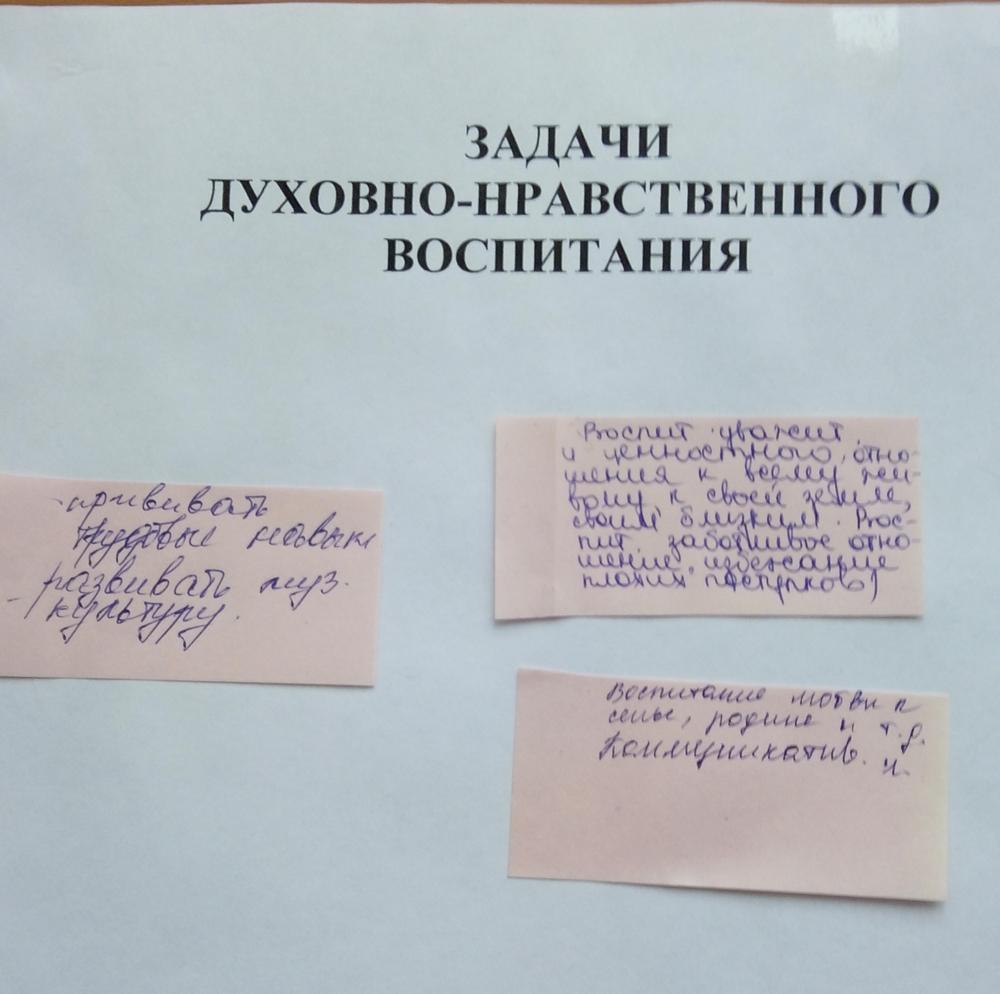 ЗАДАЧИ
ДУХОВНО-НРАВСТВЕННОГО
ВОСПИТАНИЯ
- прививать
трудовые навыки
- развивать муз.
культуру.
Воспит. уважит.
и ценностного отно-
шения к всему жи-
вому, к своей земле,
своим близким. Вос-
пит. заботливое отно-
шение, избежание
плохих поступков)
Воспитание любви к
семье, родине и т.д.
Коммуникатив. н.